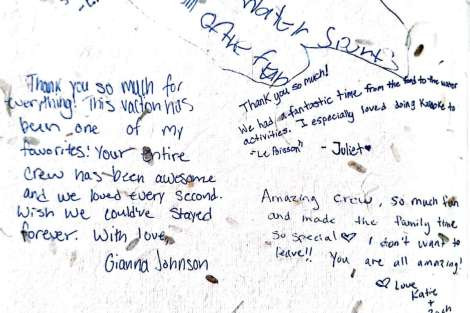 Water Sports
OF THE
Thank you so much for
everything! This vaction has
been one of my
favorites! Your entire
Crew has been awesome
and we loved every second.
Wish we could've stayed
forever. With love,
Gianna Johnson
Thank you so much!
We had a fantastic time from the food to the water
activities. I especially loved doing Karaoke to
"Le Poisson" - Juliet
Amazing Crew, so much fun
and made the family time
so special I don't want to
leave!! You are all amazing!
Love,
Katie
+